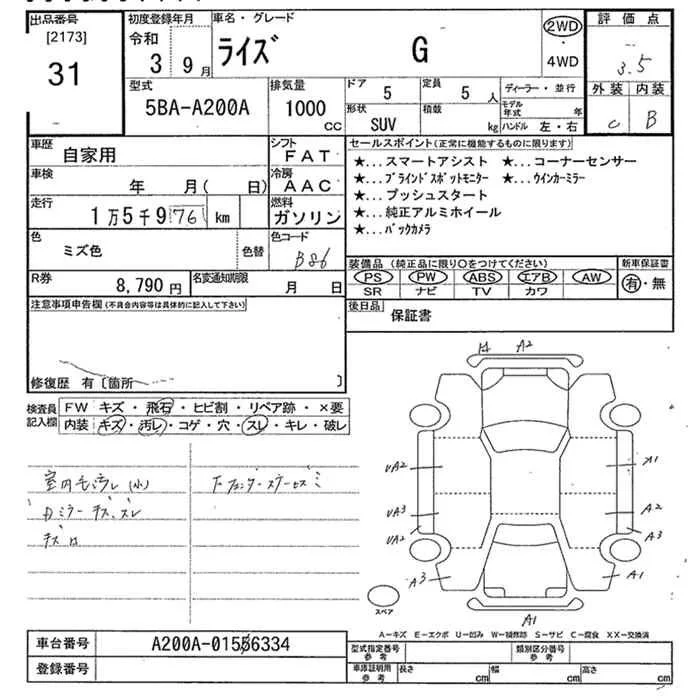 出品番号 初度登録年月 車名・グレード 2WD 評価点
[2173] 令和 ライズ G ・ 3.5
31 3 9月 4WD 外装 内装
型式 排気量 ドア 定員 ディーラー・並行 C B
5BA-A200A 1000 CC 5 5 人 モデル年式 年
形状 SUV 積載 kg ハンドル 左・右
車歴 自家用 シフト FAT セールスポイント(正常に機能するものに限ります)
車検 年 月( 日) 冷房 AAC ★...スマートアシスト ★...コーナーセンサー
★...ブラインドスポットモニター ★...ウインカーミラー
★...プッシュスタート
走行 1万5千976 km 燃料 ガソリン ★...純正アルミホイール
★...バックカメラ
色 ミズ色 色替 色コード B86
装備品(純正品に限り○をつけてください) 新車保証書
PS PW ABS エアB AW 有・無
SR ナビ TV カワ
R券 8,790円 名変通知期限 月 日
後日品 保証書
注意事項申告欄(不具合内容等は具体的に記入して下さい)
修復歴 有〔箇所 〕
検査員記入欄 FW キズ・飛石・ヒビ割・リペア跡・×要
内装 キズ・汚レ・コゲ・穴・スレ・キレ・破レ
室内 ヨゴレ(小)
ミラー キズ、スレ
キズ
A2
UA2 A1
UA3 A2
UA2 A3
A3 A1
スペア A1
A-キズ E-エクボ U-凹み W-補修跡 S-サビ C-腐食 XX-交換済
車台番号 A200A-0156334
登録番号
型式指定番号 参考 類別区分番号 参考
車庫証明用 参考 長さ cm 幅 cm 高さ cm